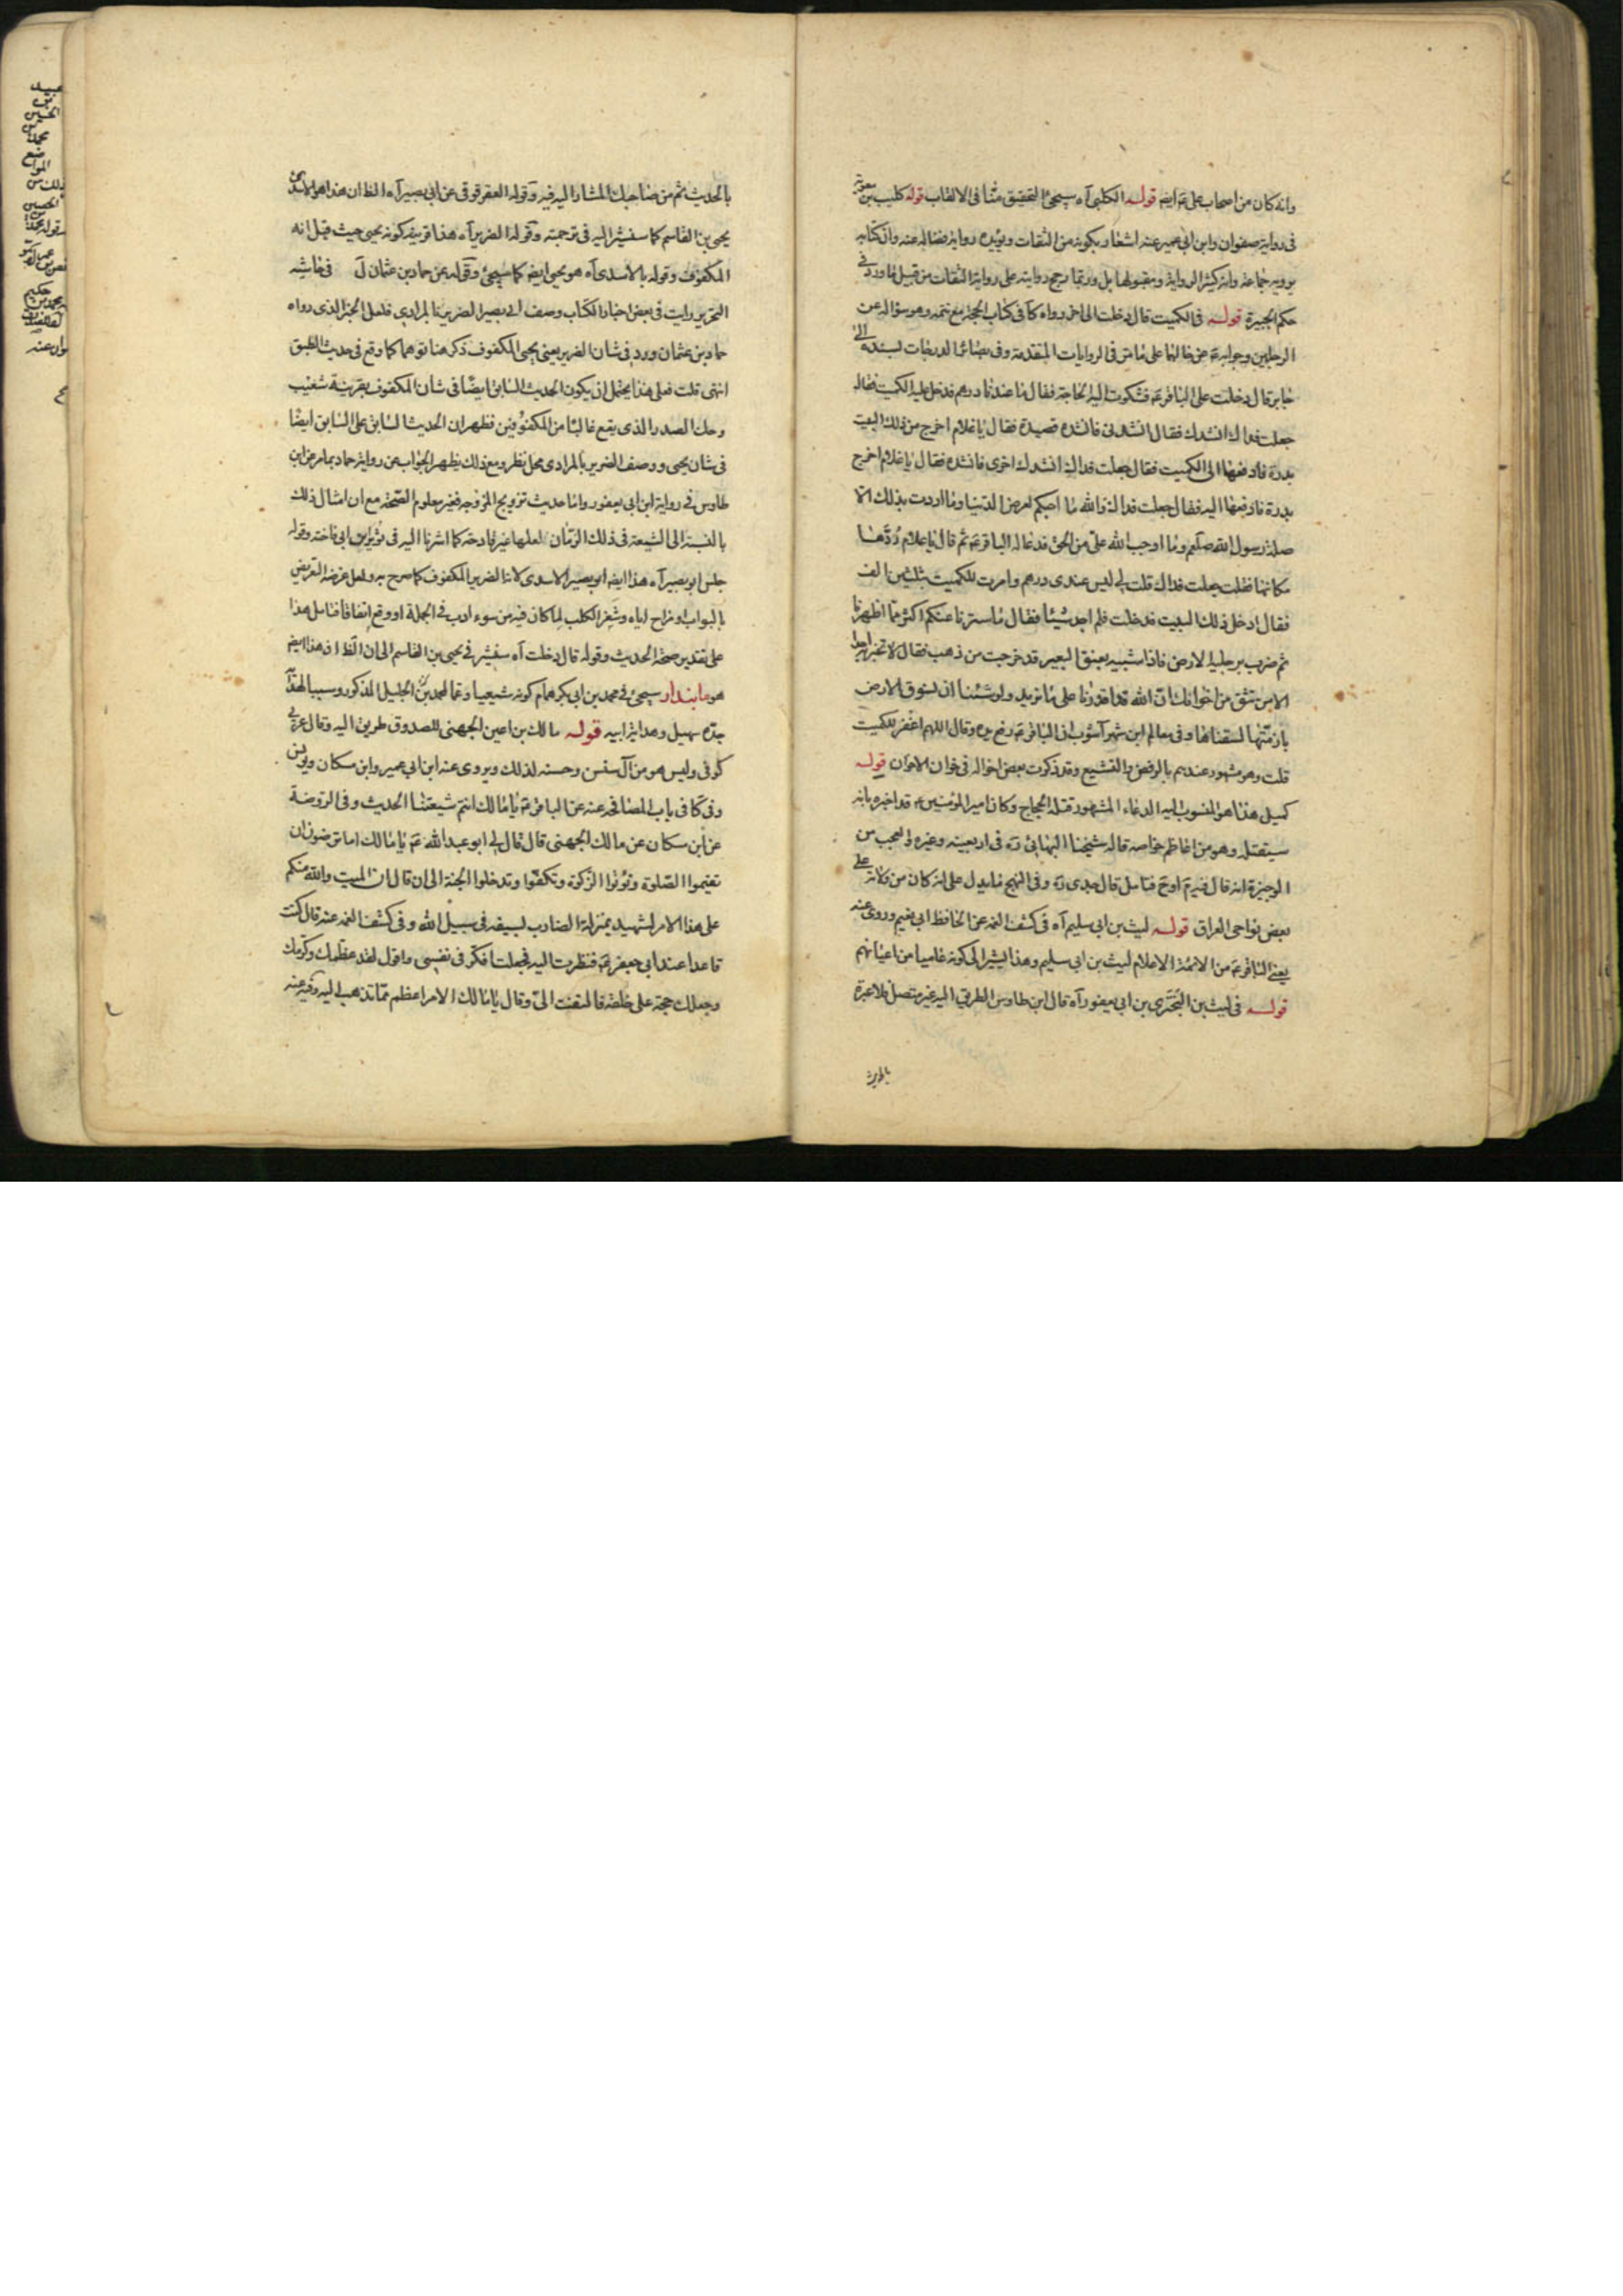 وانه كان من اصحاب علي عم ايض قوله الكلبي آه سيجئ التحقيق منا في الالقاب قوله كليب بن معوية
في رواية صفوان وابن ابي عمير عنه اشعار بكونه من الثقات ويؤيده رواية فضالة عنه وان كتابه
يرويه جماعة وانه كثير الرواية ومقبولها بل وربما يرجح روايته على رواية الثقات من قبيل ما ورد في
حكم الجبيرة قوله في الكميت قال دخلت الى اخره رواه كا في كتاب الحجة مع تتمة وهو سؤاله عن
الرجلين وجوابه عم عن حالهما على ما مر في الروايات المتقدمة وفي بصائر الدرجات بسنده الى
جابر قال دخلت على الباقر عم فشكوت اليه الحاجة فقال ما عندنا درهم فدخل عليه الكميت فقال
جعلت فداك انشدك فقال انشدني فانشده قصيدة فقال يا غلام اخرج من ذلك البيت
بدرة فادفعها الى الكميت فقال جعلت فداك انشدك اخرى فانشده فقال يا غلام اخرج
بدرة فادفعها اليه فقال جعلت فداك والله ما احبكم لعرض الدنيا وما اردت بذلك الا
صلة رسول الله صلعم وما اوجب الله علي من الحق فدعا له الباقر عم ثم قال يا غلام ردها
مكانها فقلت جعلت فداك قلت لي ليس عندي درهم وامرت للكميت بثلثين الف
فقال ادخل ذلك البيت فدخلت فلم اجد شيئا فقال ما سترنا عنكم اكثر مما اظهرنا
ثم ضرب برجليه الارض فاذا شبيه بعنق البعير قد خرجت من ذهب فقال لا تخبر به احدا
الا من تثق من اخوانك ان الله قد اقدرنا على ما نريد ولو شئنا ان نسوق الارض
بازمتها لسقناها وفي معالم ابن شهرآشوب ان الباقر عم رفع يده وقال اللهم اغفر للكميت
قلت وهو مشهور عندهم بالرفض والتشيع وقد ذكرت بعض احواله في خوان الاخوان قوله
كميل هذا هو المنسوب اليه الدعاء المشهور قتله الحجاج وكان امير المؤمنين عم قد اخبره بانه
سيقتله وهو من اعاظم خواصه قاله شيخنا البهائي ره في اربعينه وغيره والعجب من
الوجيزة انه قال فيه م اوح فتامل قال جدي ره وفي النهج ما يدل على انه كان من ولاته على
بعض نواحي العراق قوله ليث بن ابي سليم آه في كشف الغمة عن الحافظ ابي نعيم وروى عنه
يعني الباقر عم من الائمة الاعلام ليث بن ابي سليم وهذا يشير الى كونه عاميا من اعيانهم
قوله في ليث بن البختري بن ابي يعفور آه قال ابن طاوس الطريق اليه غير متصل فلا عبرة
بالحديث
بالحديث ثم من صاحبك المشار اليه فيه وقوله العقرقوقي عن ابي بصير آه الظ ان هذا هو الاسدي
يحيى بن القاسم كما سنشير اليه في ترجمته وقوله الضرير آه هذا توصيف كونه يحيى حيث قيل انه
المكفوف وقوله بالاسدي آه هو يحيى ايض كما سيجئ وقوله عن حماد بن عثمان ل في حاشية
التحرير رايت في بعض اخبار الكتاب وصف ابي بصير الضرير بالمرادي فلعل الخبر الذي رواه
حماد بن عثمان ورد في شان الضرير يعني يحيى المكفوف ذكر هنا توهما كما وقع في حديث الطبق
انتهى قلت فعلى هذا يحتمل ان يكون الحديث السابق ايضا في شان المكفوف بقرينة شعيب
وحك الصدر الذي يقع غالبا من المكفوفين فظهر ان الحديث السابق على السابق ايضا
في شان يحيى ووصف الضرير بالمرادي محل نظر ومع ذلك يظهر الجواب عن رواية حماد بما مر عن ابن
طاوس في رواية ابن ابي يعفور واما حديث تزويج المزوجة فغير معلوم الصحة مع ان امثال ذلك
بالنسبة الى الشيعة في ذلك الزمان لعلها غير قادحة كما اشرنا اليه في ثوير بن ابي فاخته وقوله
جلس ابو بصير آه هذا ايض ابو بصير الاسدي لانه الضرير المكفوف كما صرح به ولعل غرضه التعريض
بالبواب او مزاح اياه وشغر الكلب لما كان فيه من سوء ادب في الجملة او وقع اتفاقا فتامل هذا
على تقدير صحة الحديث وقوله قال دخلت آه سنشير في يحيى بن القاسم الى ان الظ ان هذا ايض
هو مابندار سيجئ في محمد بن ابي بكر همام كونه شيعيا وعما لمحمد بن الجليل المذكور وسببا لهداية
جده سهيل وهداية ابيه قوله مالك بن اعين الجهني للصدوق طريق اليه وقال عربي
كوفي وليس هو من آل سنسن وحسنه لذلك ويروي عنه ابن ابي عمير وابن مسكان ويونس
وفي كا في باب المصافحة عنه عن الباقر عم يا مالك انتم شيعتنا الحديث وفي الروضة
عن ابن مسكان عن مالك الجهني قال قال لي ابو عبد الله عم يا مالك اما ترضون ان
تقيموا الصلوة وتؤتوا الزكوة وتكفوا وتدخلوا الجنة الى ان قال ان الميت والله منكم
على هذا الامر لشهيد بمنزلة الضارب بسيفه في سبيل الله وفي كشف الغمة عنه قال كنت
قاعدا عند ابي جعفر عم فنظرت اليه فجعلت افكر في نفسي واقول لقد عظمك وكرمك
وجعلك حجة على خلقه فالتفت الي وقال يا مالك الامر اعظم مما تذهب اليه وفيه عنه